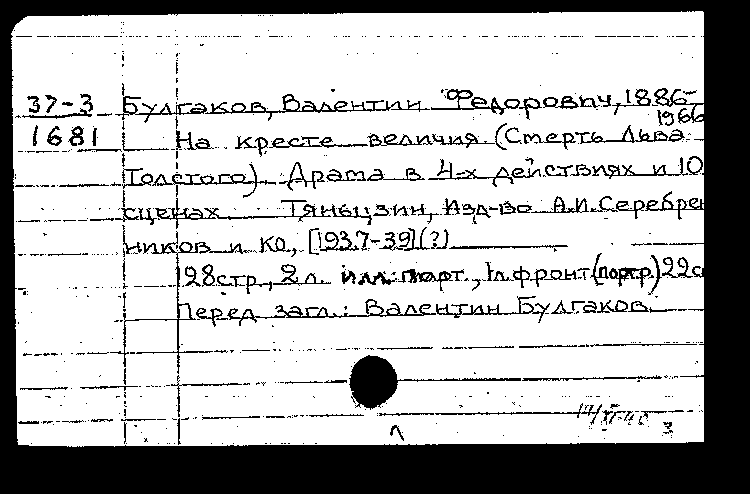 37-3 Булгаков, Валентин Федорович, 1886-
1966
1681 На кресте величия (Смерть Льва
Толстого). Драма в 4-х действиях и 10
сценах Тяньцзин, Изд-во А.И. Серебрен
ников и К0, [1937-39](?)
128стр., 2 л. илл. порт., 1л. фронт(портр.) 22с
Перед загл.: Валентин Булгаков.
3